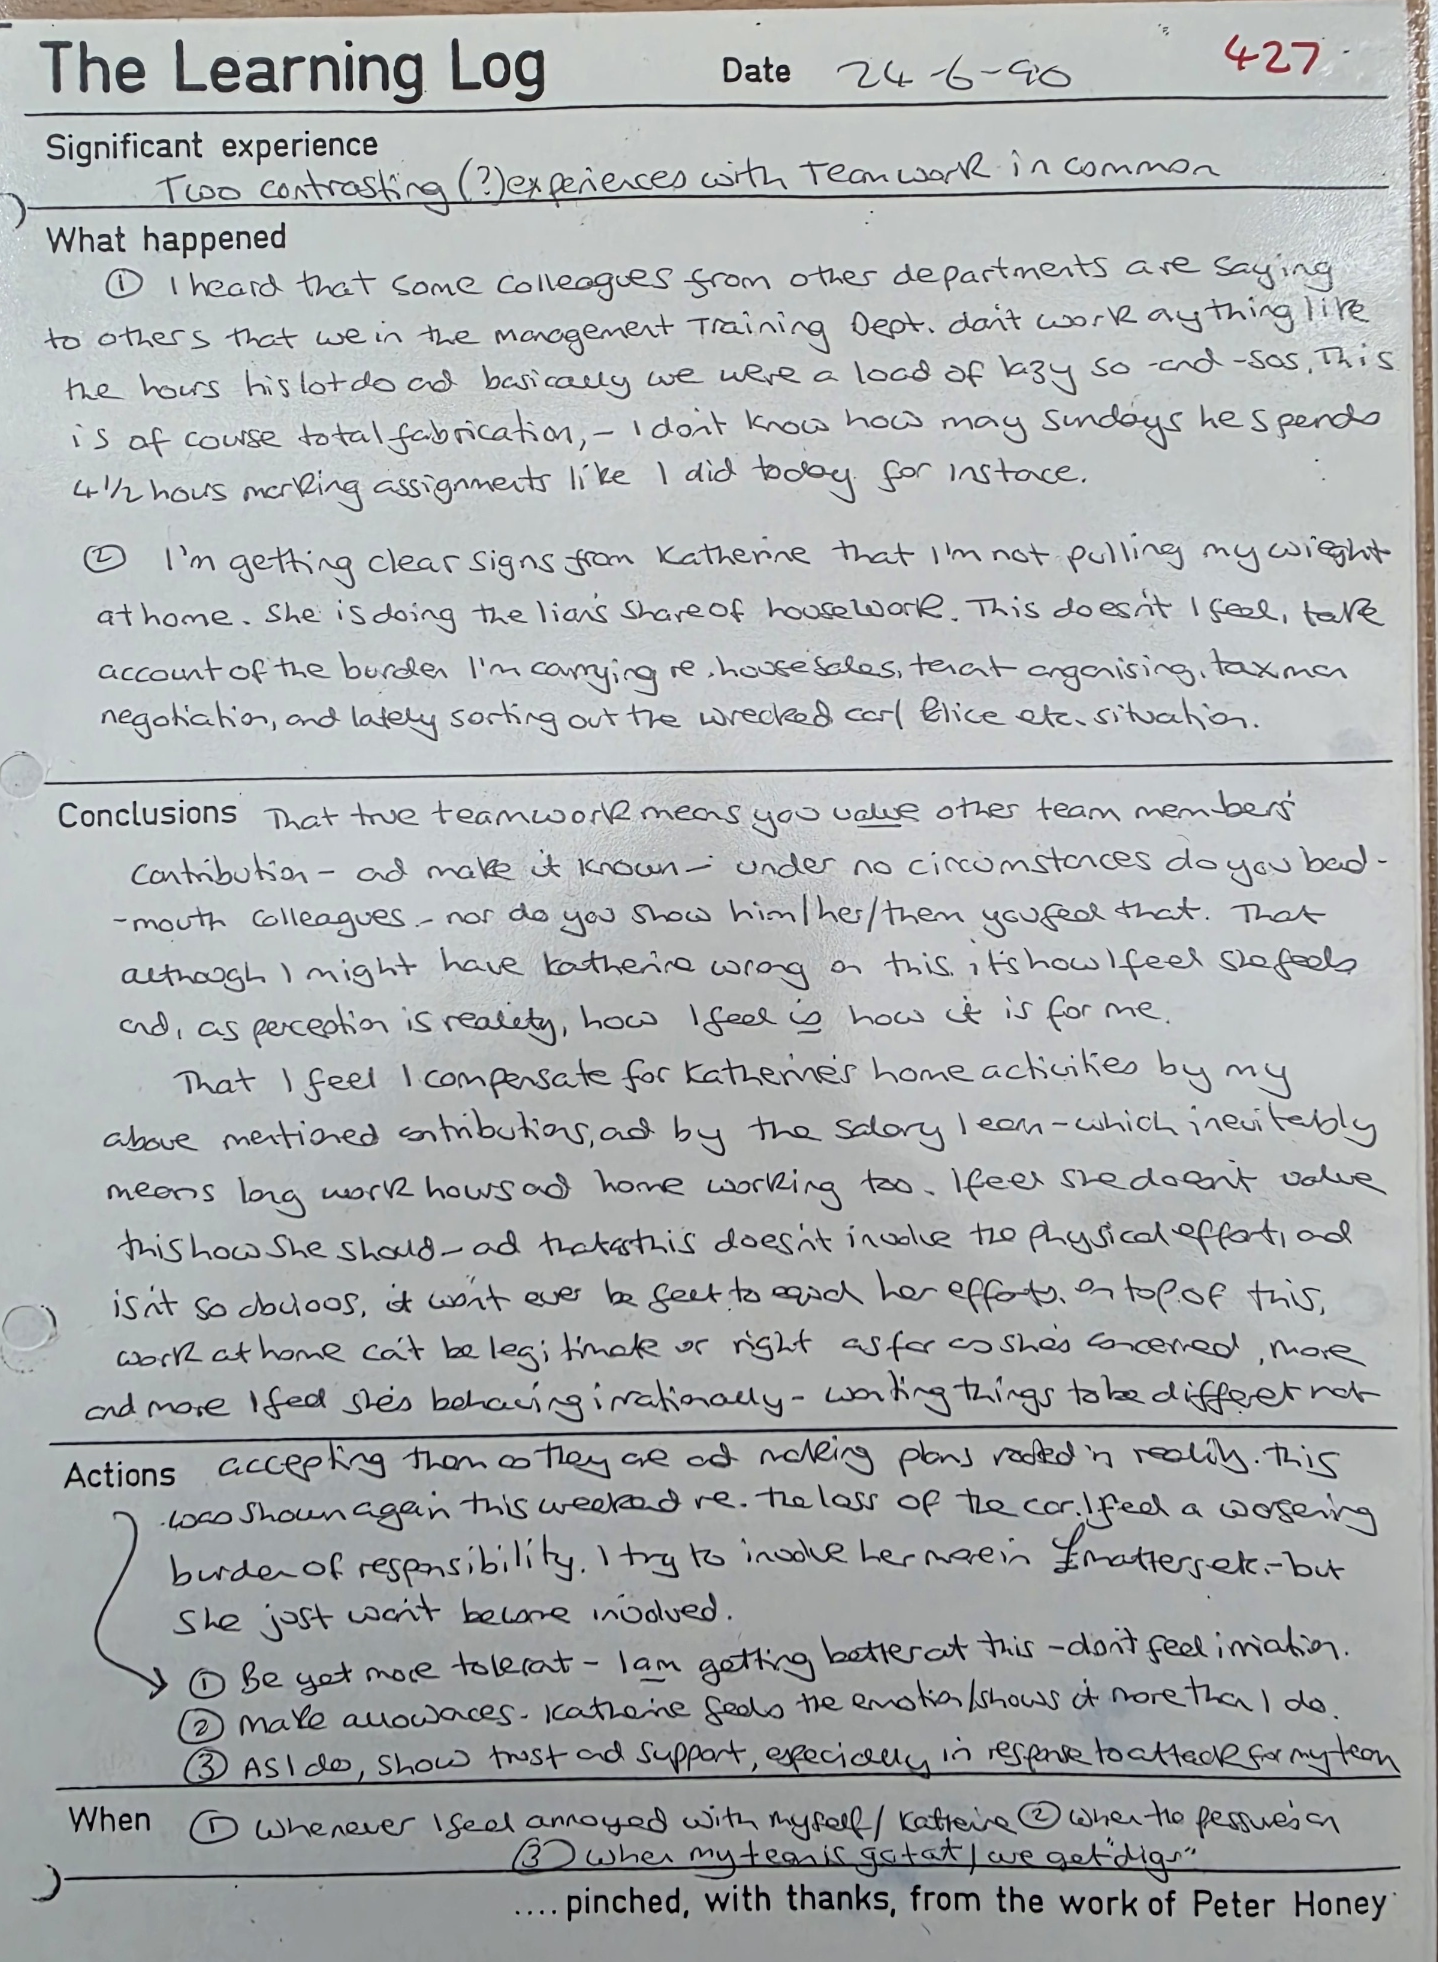 The Learning Log Date 24-6-90 427
Significant experience
Two contrasting (?) experiences with teamwork in common
What happened
① I heard that some colleagues from other departments are saying
to others that we in the management Training Dept. don't work aything like
the hours his lot do ad basically we were a load of lazy so-and-sos. This
is of course total fabrication, - I don't know how may Sundays he spends
4½ hours marking assignments like I did today for instace.
② I'm getting clear signs from Katherine that I'm not pulling my wieght
at home. She is doing the lion's share of housework. This doesn't I feel, take
account of the burden I'm carrying re. house sales, tenat organising, taxman
negotiation, and lately sorting out the wrecked car/ etc. situation.
Conclusions That true teamwork means you value other team members'
contribution - ad make it known - under no circumstances do you bad-
-mouth colleagues - nor do you show him/her/them you feel that. That
although I might have Katherine wrong on this, it's how I feel she feels
and, as perception is reality, how I feel is how it is for me.
That I feel I compensate for Katherine's home activities by my
above mentioned contributions, ad by the salary I earn - which inevitably
means long work hours ad home working too. I feel she doesn't value
this how she should - ad that as this doesn't involve the physical effort, ad
isn't so obvious, it won't ever be felt to equal her efforts. On top of this,
work at home ca't be legitimate or right as far as she's concerned, more
and more I feel she's behaving irrationally - wanting things to be differet not
Actions accepting them as they are ad making plans rooted in reality. This
was shown again this weekend re. the loss of the car. I feel a worsening
burden of responsibility. I try to involve her more in £ matters etc. - but
she just won't become involved.
① Be yet more tolerat - I am getting better at this - don't feel irritation.
② Make allowaces. Katherine feels the emotion/shows it more than I do.
③ As I do, show trust ad support, especially in response to attack for my team
When ① Whenever I feel annoyed with myself/ Katherine ② When the pessure's on
③ When my team is got at/we get "digs"
.... pinched, with thanks, from the work of Peter Honey